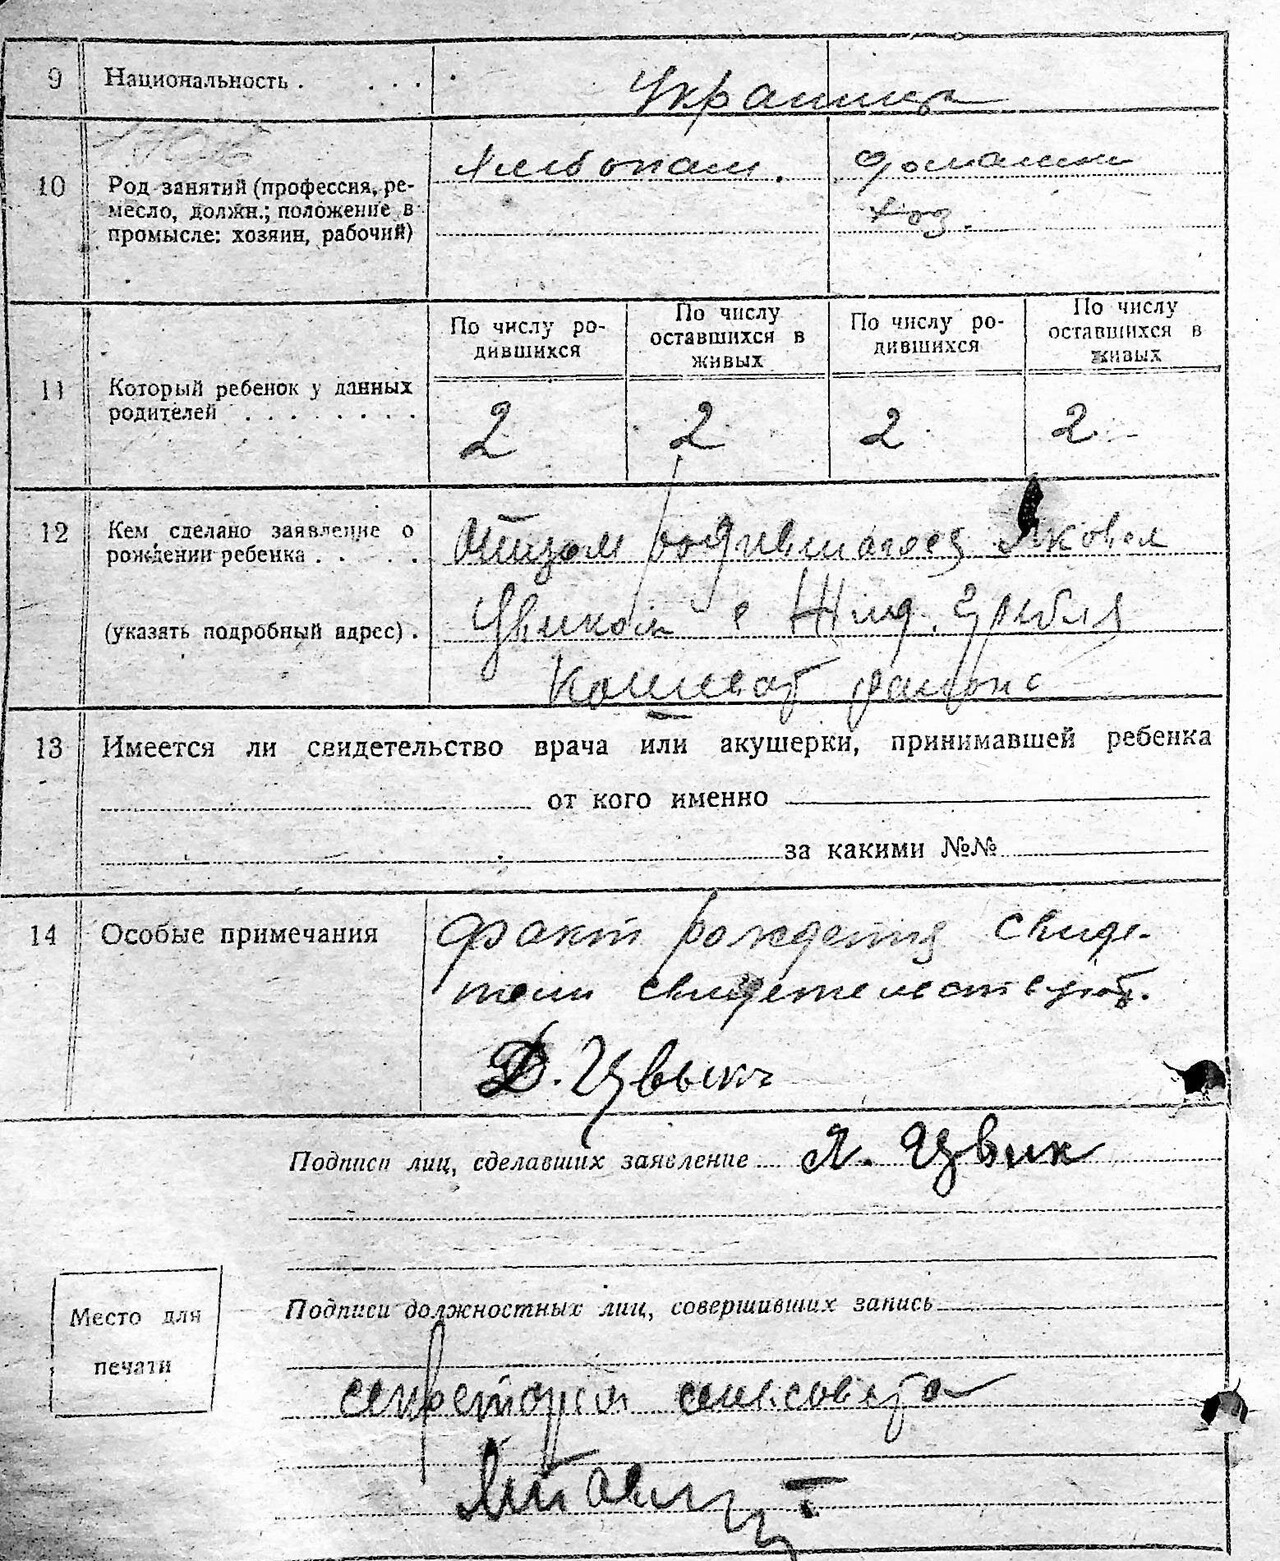 9 Национальность . . . . Украинцы
10 Род занятий (профессия, ре-
месло, должн.; положение в
промысле: хозяин, рабочий)
Хлебопаш. домашн
хоз.
По числу ро-
дившихся
По числу
оставшихся в
живых
По числу ро-
дившихся
По числу
оставшихся в
живых
11 Который ребенок у данных
родителей . . . . . . . .
2 2 2 2
12 Кем сделано заявление о
рождении ребенка . . . .
(указать подробный адрес) .
Отцом родившагося Яковом
Цвиком с Жид. Гребля
Кошеват района
13 Имеется ли свидетельство врача или акушерки, принимавшей ребенка
от кого именно
за какими №№
14 Особые примечания
Факт рождения свиде-
тели свидетельствуют.
Д. Цвык
Подписи лиц, сделавших заявление Я. Цвик
Подписи должностных лиц, совершивших запись
Место для
печати
секретарь сельсовета